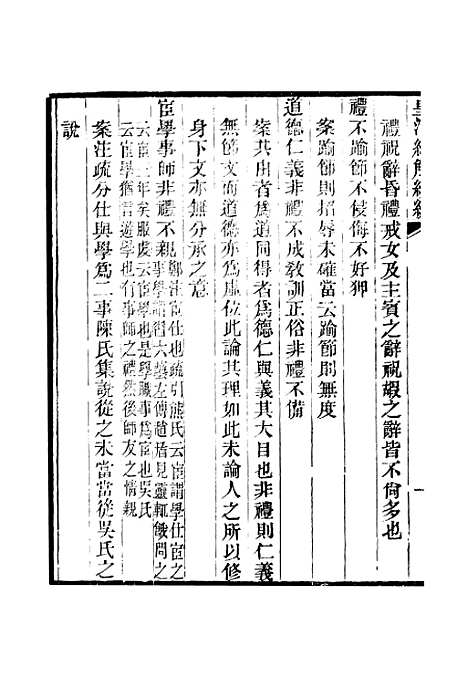 皇清經解續編
一
禮祝辭昏禮戒女及主賓之辭祝嘏之辭皆不尚多也
禮不踰節不侵侮不好狎
案踰節則招辱未確當云踰節則無度
道德仁義非禮不成教訓正俗非禮不備
案共由者爲道同得者爲德仁與義其大目也非禮則仁義
無節文而道德亦爲虛位此論其理如此未論人之所以修
身下文亦無分承之意
宦學事師非禮不親鄭注宦仕也疏引熊氏云宦謂學仕宦之
事學謂習六藝左傳趙盾見靈輒餓問之
云宦三年矣服虔云宦學也是學職事爲宦也吳氏
云宦學猶言遊學也有事師之禮然後師友之情親
案注疏分仕與學爲二事陳氏集說從之未當當從吳氏之
說